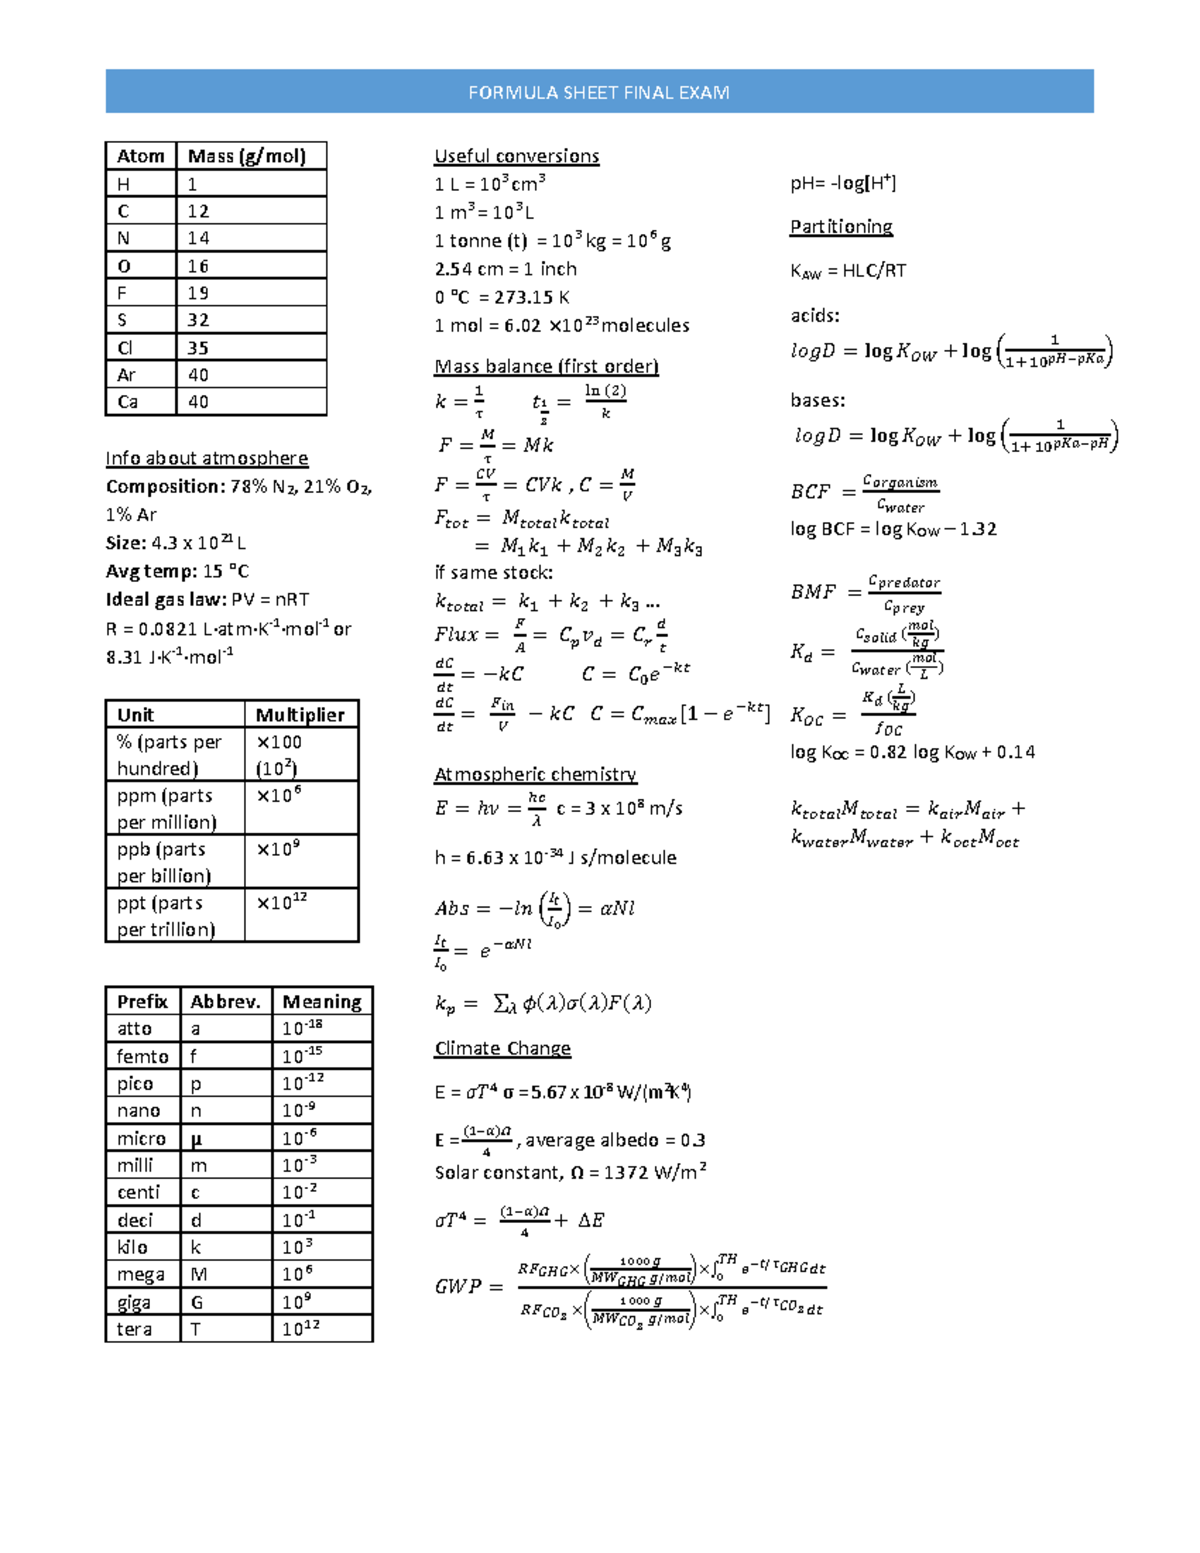 FORMULA SHEET FINAL EXAM
Atom Mass (g/mol)
H 1
C 12
N 14
O 16
F 19
S 32
Cl 35
Ar 40
Ca 40
Info about atmosphere
Composition: 78% N₂, 21% O₂,
1% Ar
Size: 4.3 x 10²¹ L
Avg temp: 15 °C
Ideal gas law: PV = nRT
R = 0.0821 L·atm·K⁻¹·mol⁻¹ or
8.31 J·K⁻¹·mol⁻¹
Unit Multiplier
% (parts per ×100
hundred) (10²)
ppm (parts ×10⁶
per million)
ppb (parts ×10⁹
per billion)
ppt (parts ×10¹²
per trillion)
Prefix Abbrev. Meaning
atto a 10⁻¹⁸
femto f 10⁻¹⁵
pico p 10⁻¹²
nano n 10⁻⁹
micro μ 10⁻⁶
milli m 10⁻³
centi c 10⁻²
deci d 10⁻¹
kilo k 10³
mega M 10⁶
giga G 10⁹
tera T 10¹²
Useful conversions
1 L = 10³ cm³
1 m³ = 10³ L
1 tonne (t) = 10³ kg = 10⁶ g
2.54 cm = 1 inch
0 °C = 273.15 K
1 mol = 6.02 ×10²³ molecules
Mass balance (first order)
k = 1/τ t_(1/2) = ln (2)/k
F = M/τ = Mk
F = CV/τ = CVk , C = M/V
F_tot = M_total k_total
= M₁k₁ + M₂k₂ + M₃k₃
if same stock:
k_total = k₁ + k₂ + k₃ ...
Flux = F/A = C_p v_d = C_r d/t
dC/dt = −kC C = C₀e^(−kt)
dC/dt = F_in/V − kC C = C_max[1 − e^(−kt)]
Atmospheric chemistry
E = hν = hc/λ c = 3 x 10⁸ m/s
h = 6.63 x 10⁻³⁴ J s/molecule
Abs = −ln (I_t/I₀) = αNl
I_t/I₀ = e^(−αNl)
k_p = ∑_λ ϕ(λ)σ(λ)F(λ)
Climate Change
E = σT⁴ σ =5.67 x 10⁻⁸ W/(m²K⁴)
E = (1−α)Ω/4 , average albedo = 0.3
Solar constant, Ω = 1372 W/m²
σT⁴ = (1−α)Ω/4 + ΔE
GWP = [RF_GHG × (1000 g/MW_GHG g/mol) × ∫₀^TH e^(−t/τ_GHG) dt] / [RF_CO₂ × (1000 g/MW_CO₂ g/mol) × ∫₀^TH e^(−t/τ_CO₂) dt]
pH= -log[H⁺]
Partitioning
K_AW = HLC/RT
acids:
logD = log K_OW + log (1/(1+10^(pH−pKa)))
bases:
logD = log K_OW + log (1/(1+10^(pKa−pH)))
BCF = C_organism/C_water
log BCF = log K_OW – 1.32
BMF = C_predator/C_prey
K_d = C_solid (mol/kg)/C_water (mol/L)
K_OC = K_d (L/kg)/f_OC
log K_OC = 0.82 log K_OW + 0.14
k_total M_total = k_air M_air +
k_water M_water + k_oct M_oct